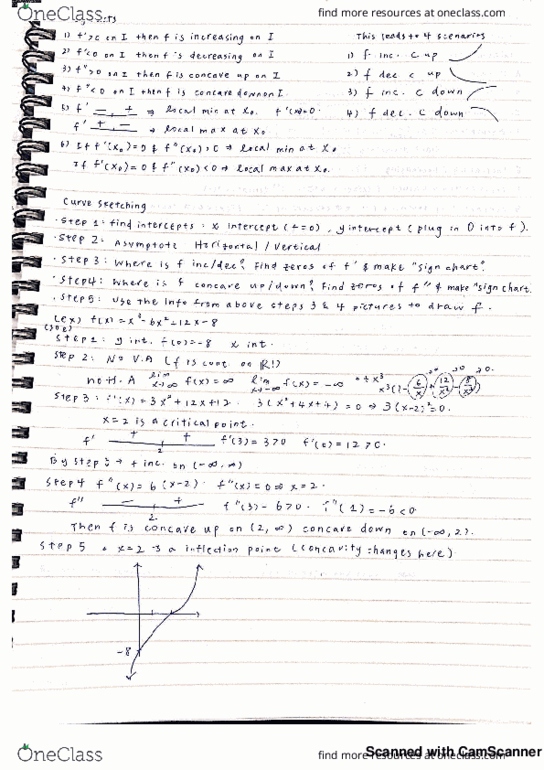 OneClass
find more resources at oneclass.com
1) f'>0 on I then f is increasing on I
This leads to 4 scenarios
2) f'<0 on I then f is decreasing on I
1) f inc. c up
3) f">0 on I then f is concave up on I
2) f dec c up
4) f"<0 on I then f is concave down on I.
3) f inc. c down
5) f' — + ⇒ local min at x₀. f'(x)=0.
4) f dec. c down
f' + — ⇒ local max at x₀
6) If f'(x₀)=0 & f"(x₀)>0 ⇒ local min at x₀
If f'(x₀)=0 & f"(x₀)<0 ⇒ local max at x₀.
Curve sketching
· Step 1: find intercepts: x intercept (f=0), y intercept (plug in 0 into f).
· Step 2: Asymptote Horizontal / Vertical
· Step 3: Where is f inc/dec? Find zeros of f' & make "sign chart".
· Step 4: Where is f concave up/down? Find zeros of f" & make "sign chart.
· Step 5: Use the info from above steps 3 & 4 pictures to draw f.
(ex) f(x)=x³-6x²+12x-8
Step 1: y int. f(0)=-8 x int.
Step 2: No V.A (f is cont. on ℝ!)
no H.A lim x→∞ f(x)=∞ lim x→-∞ f(x)=-∞
Step 3: f'(x)=3x²+12x+12. 3(x²+4x+4)=0 ⇒ 3(x-2)²=0.
x=2 is a critical point.
f' + + 2 f'(3)=3>0 f'(0)=12>0.
By step f inc. on (-∞,∞)
Step 4 f"(x)=6(x-2). f"(x)=0 ⇒ x=2.
f" — + 2 f"(3)=6>0. f"(1)=-6<0
Then f is concave up on (2,∞) concave down on (-∞,2).
Step 5 x=2 is a inflection point (concavity changes here)
-8
OneClass
find more resources at oneclass.com
Scanned with CamScanner